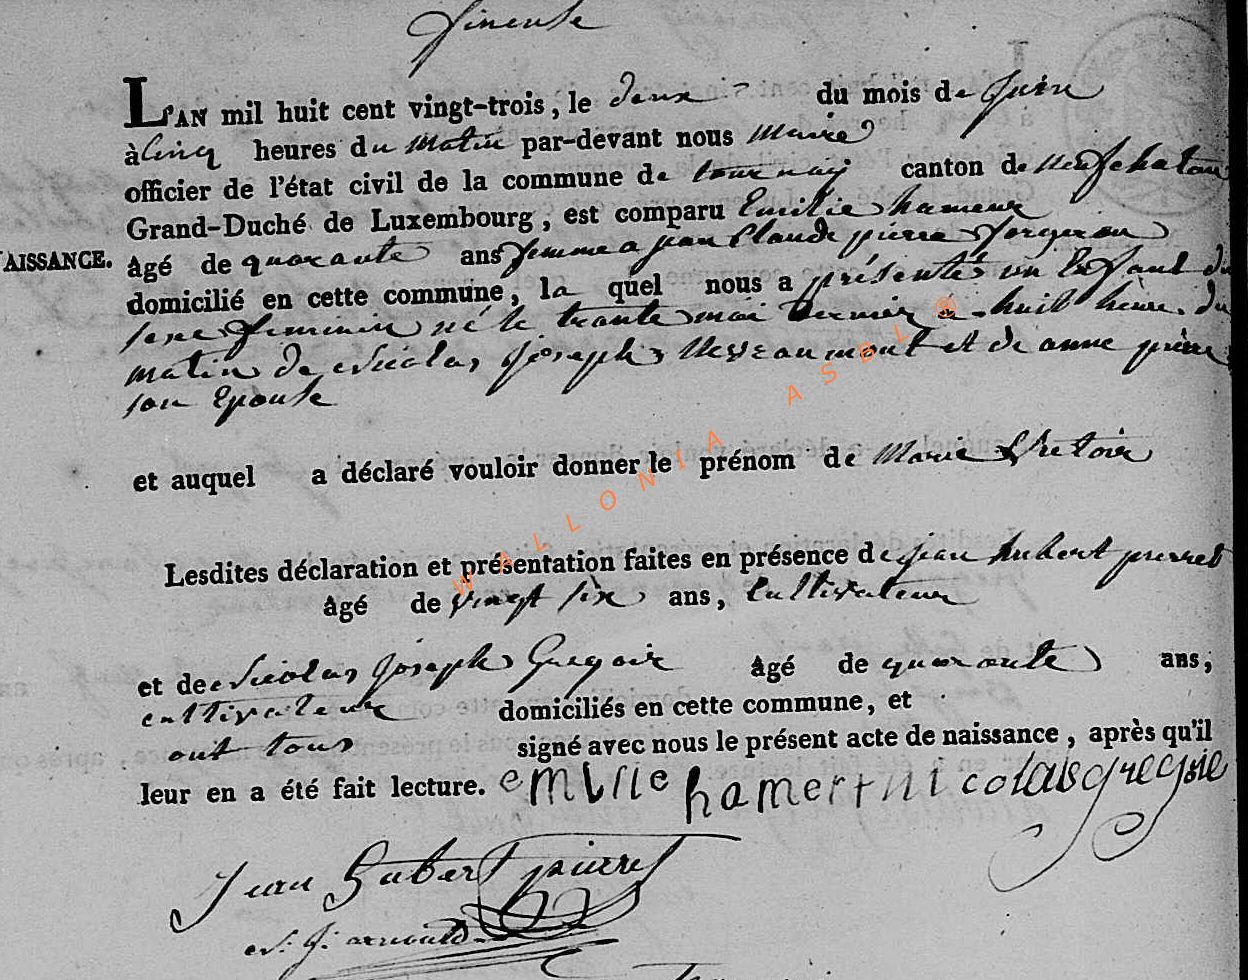 L'AN mil huit cent vingt-trois, le deux du mois de Juin
à Cinq heures du Matin par-devant nous Maire
officier de l'état civil de la commune de tournay canton de neufchatau
Grand-Duché de Luxembourg, est comparu Emilie hameur
NAISSANCE.
âgé de quarante ans femme a jean Claude pierre forgeron
domicilié en cette commune, la quel nous a présenté un Enfant du
sexe feminin né le trante mai dernier a huit heure du
matin de Nicolas joseph Nesseaumont et de anne
son Epouse
et auquel a déclaré vouloir donner le prénom de Marie
Lesdites déclaration et présentation faites en présence de jean hubert pierret
âgé de vingt six ans, Cultivateur
et de Nicolas joseph Gregoir âgé de quarante ans,
cultivateur domiciliés en cette commune, et
ont tous signé avec nous le présent acte de naissance, après qu'il
leur en a été fait lecture. emilie hamert nicolas gregoie
Jean Hubert pierret
N. J. arnould
WALLONIA ASBL ®